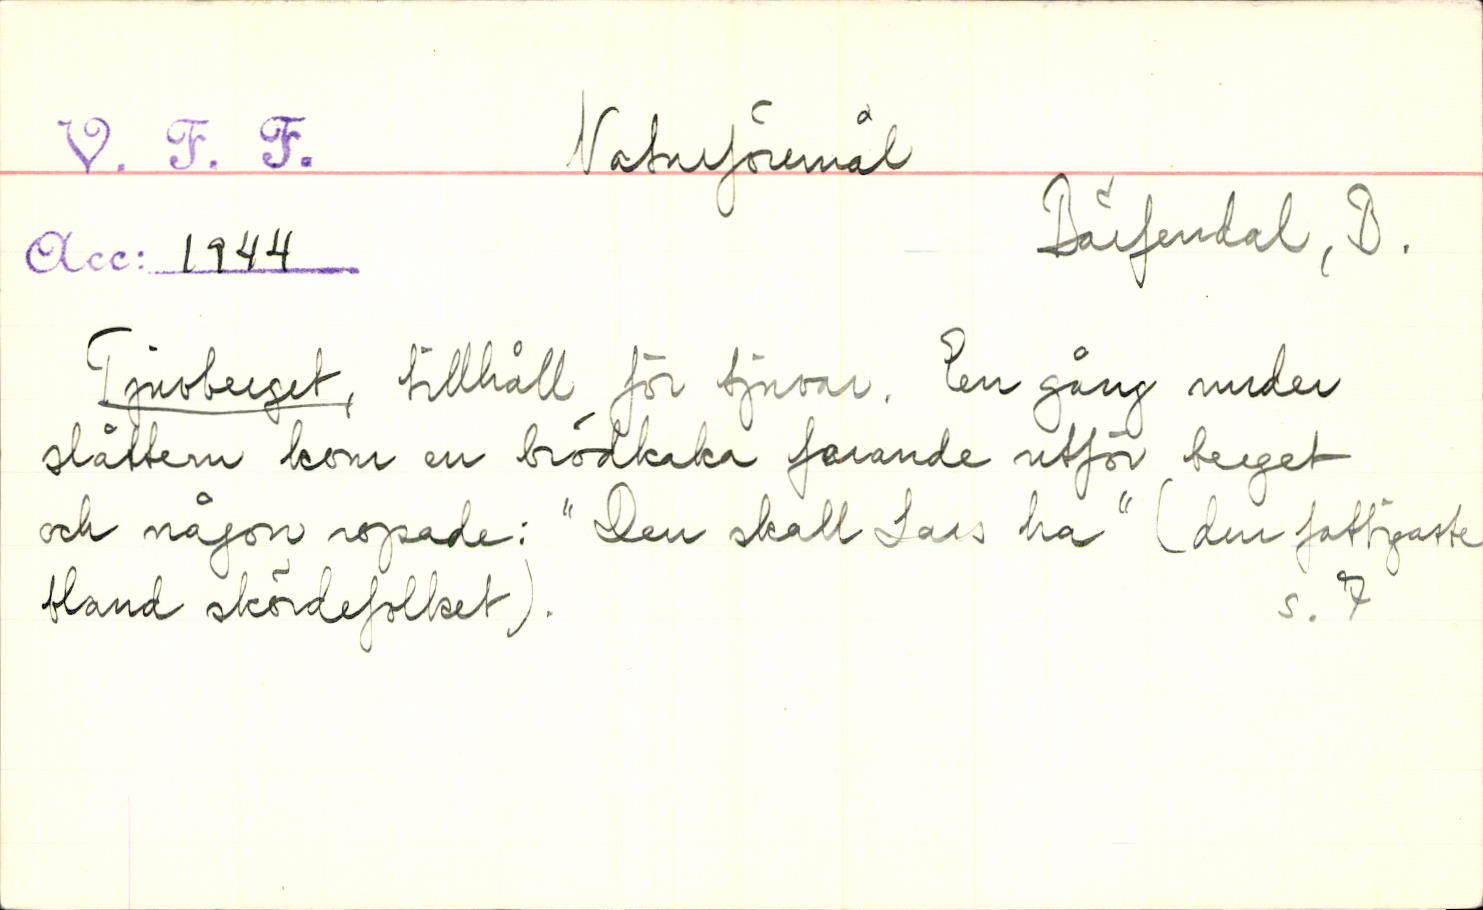 V. F. F.
Naturföremål
Bärfendal, B.
Acc: 1944
Tjuvberget, tillhåll för tjuvar. En gång under
slåttern kom en brödkaka farande utför berget
och någon ropade: "Den skall Lars ha" (den fattigaste
bland skördefolket).
s. 7